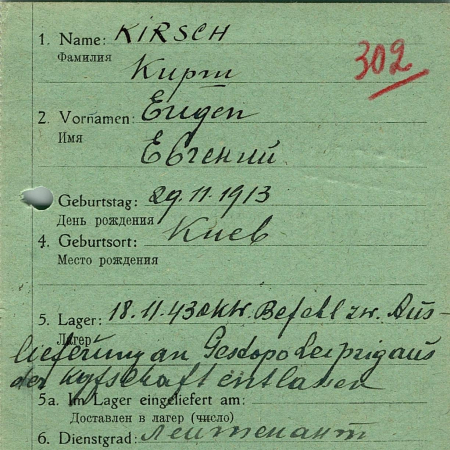 1. Name: KIRSCH 302
Фамилия
Кирш
2. Vornamen: Eugen
Имя
Евгений
Geburtstag: 29.11.1913
День рождения
4. Geburtsort: Киев
Место рождения
5. Lager: 18.11.43 OKW. Befehl zw. Aus-
Лагерь
lieferung an Gestapo Leipzig aus
der Kgfschaft entlassen
5a. Im Lager eingeliefert am:
Доставлен в лагер (число)
6. Dienstgrad: лейтенант